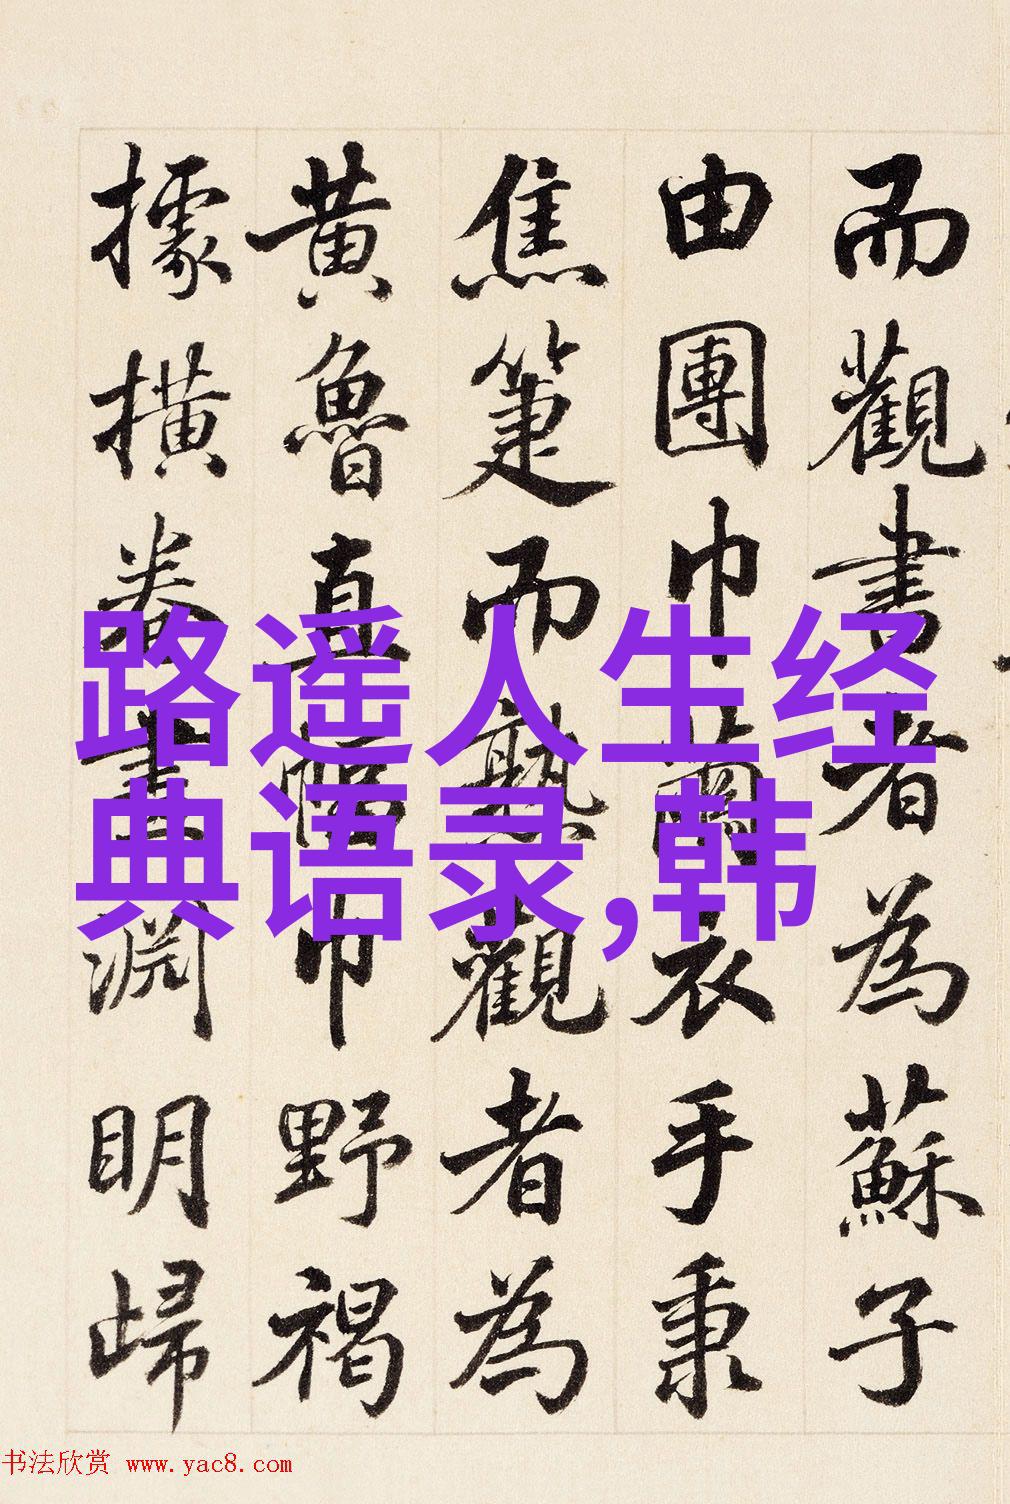 而觀書者為蘇子
由團巾繭衣手秉
焦箑而熟觀者為
黄魯直幅巾野褐
據横卷畫淵明歸
路遥人生经
典语录,韩
书法欣赏 www.yac8.com